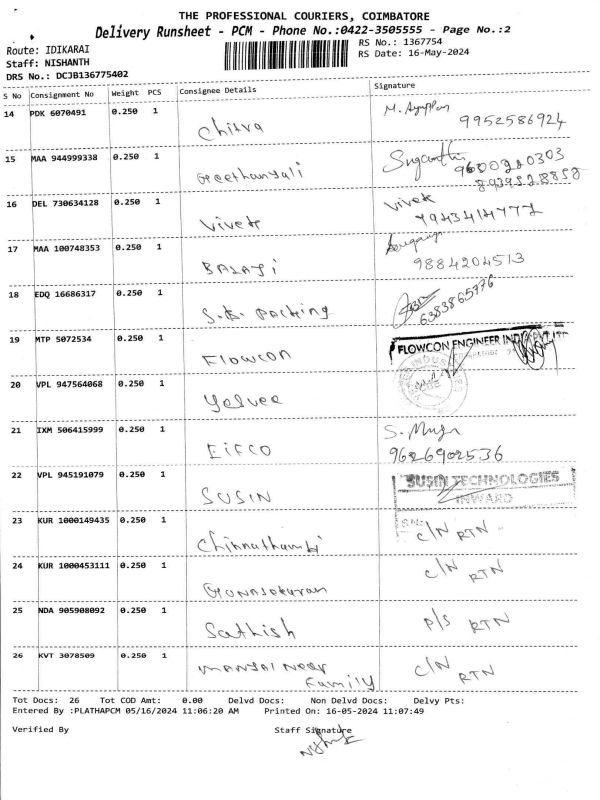 THE PROFESSIONAL COURIERS, COIMBATORE
Delivery Runsheet - PCM - Phone No.:0422-3505555 - Page No.:2
Route: IDIKARAI
RS No.: 1367754
Staff: NISHANTH
RS Date: 16-May-2024
DRS No.: DCJB136775402
S No Consignment No Weight PCS Consignee Details Signature
14 PDK 6070491 0.250 1 Chitva M. Ayyppan
9952586924
15 MAA 944999338 0.250 1 Geethanyali Suganthi
9600320303
8939528858
16 DEL 730634128 0.250 1 Vivek Vivek
7943414777
17 MAA 100748353 0.250 1 BALAJI
9884204513
18 EDQ 16686317 0.250 1 S.K. Packing
6383865776
19 MTP 5072534 0.250 1 Flowcon FLOWCON ENGINEER IND PVT LTD
20 VPL 947564068 0.250 1
21 IXM 506415999 0.250 1 EIFCO S. Muga
9626902536
22 VPL 945191079 0.250 1 SUSIN SUSIN TECHNOLOGIES
INWARD
23 KUR 1000149435 0.250 1 Chinnathambi C/N RTN
24 KUR 1000453111 0.250 1 Gunasekaran C/N RTN
25 NDA 905908092 0.250 1 Sathish P/S RTN
26 KVT 3078509 0.250 1 Family C/N RTN
Tot Docs: 26 Tot COD Amt: 0.00 Delvd Docs: Non Delvd Docs: Delvy Pts:
Entered By :PLATHAPCM 05/16/2024 11:06:20 AM Printed On: 16-05-2024 11:07:49
Verified By Staff Signature